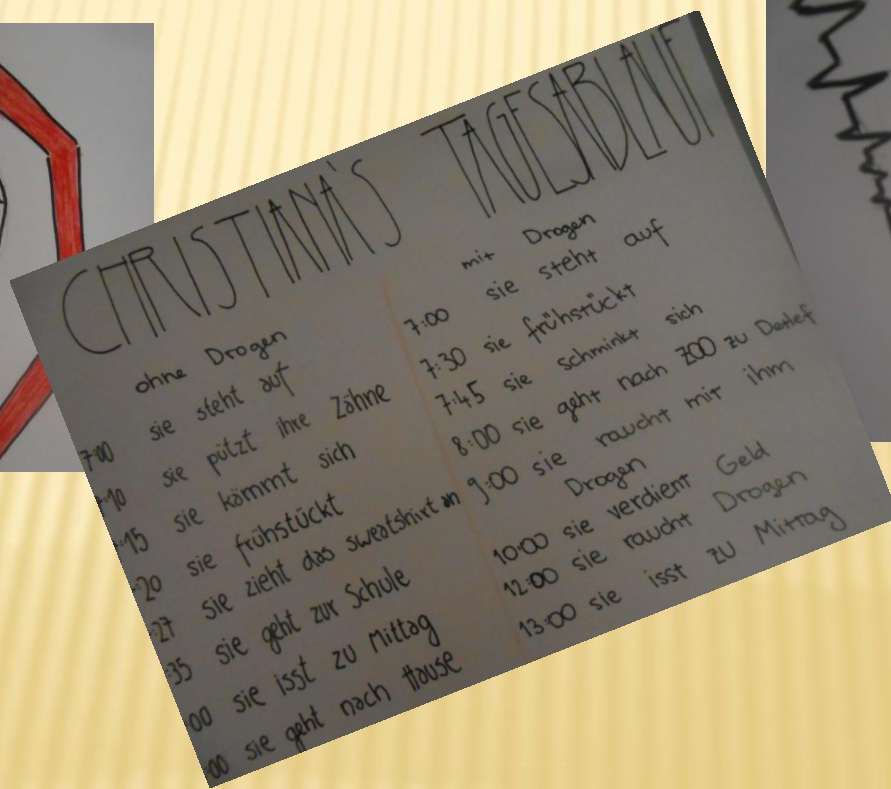 CHRISTIANA'S TAGESABLAUF
ohne Drogen
7:00 sie steht auf
:10 sie pützt ihre Zähne
:15 sie kömmt sich
:20 sie frühstückt
:27 sie zieht das sweatshirt an
:35 sie geht zur Schule
:00 sie isst zu Mittag
:00 sie geht nach Hause
mit Drogen
7:00 sie steht auf
7:30 sie frühstückt
7:45 sie schminkt sich
8:00 sie geht nach ZOO zu Detlef
9:00 sie raucht mit ihm
Drogen
10:00 sie verdient Geld
12:00 sie raucht Drogen
13:00 sie isst zu Mittag